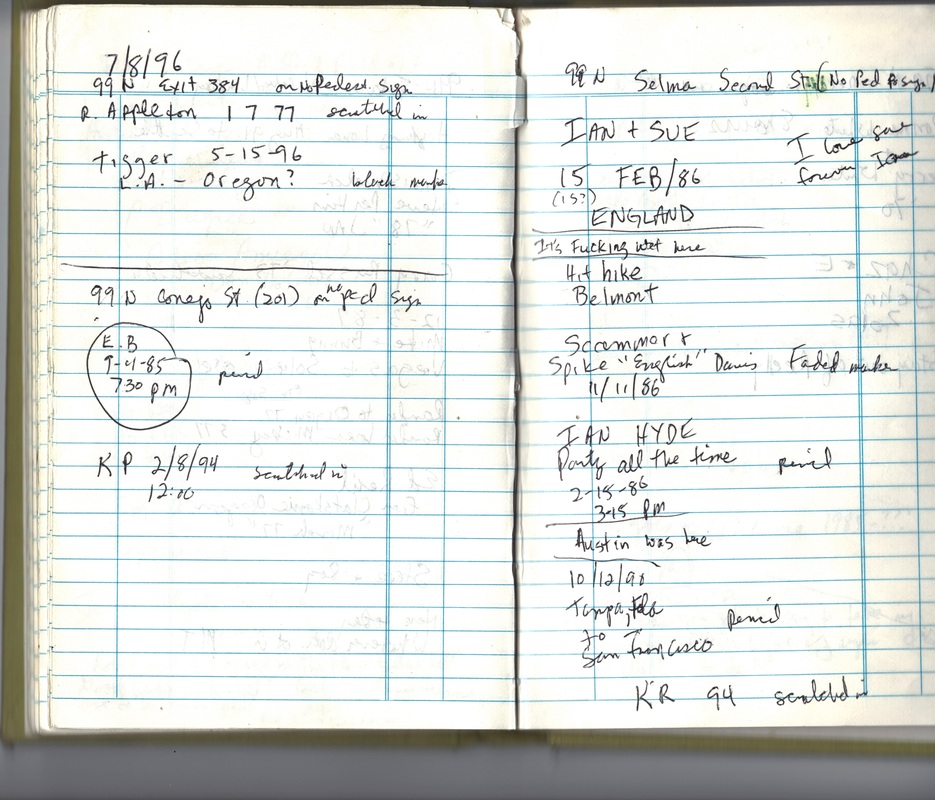 7/8/96
99 N Exit 384 on No Pedest. Sign
R. Appleton 1 7 77 scratched in
Tigger 5-15-96
L.A. - Oregon? black marker
99 N Conejo St (201) on no ped sign
E.B
9-4-85
7:30 pm pencil
K P 2/8/94 scratched in
12:00
99 N Selma Second St No Ped sign
IAN + SUE
I love
forever
15 FEB/86
(15?)
ENGLAND
It's Fucking wet here
Hit hike
Belmont
Scammort
Spike "English" Davis Faded marker
11/11/86
IAN HYDE
Party all the time pencil
2-15-86
3:15 pm
Austin was here
10/12/90
Tampa, Fla
to pencil
San Francisco
KR 94 scratched in